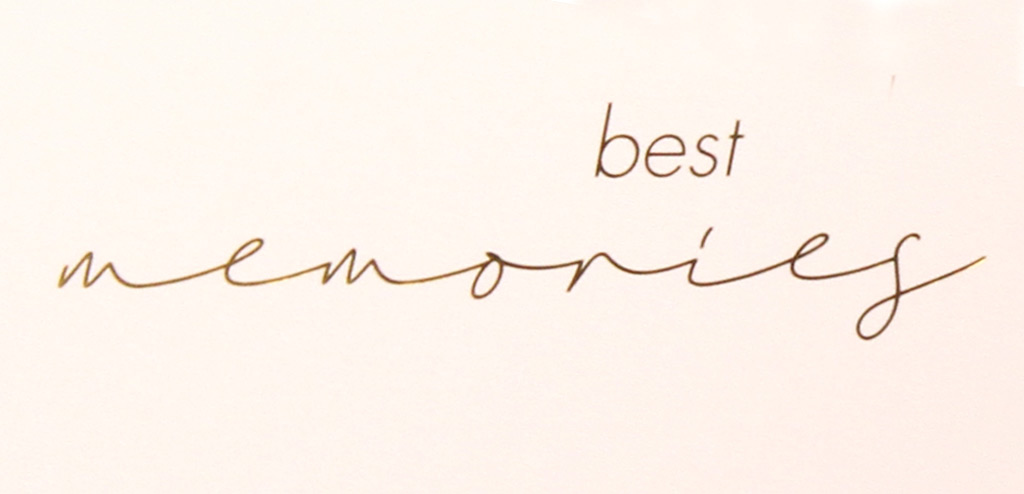 best
memories